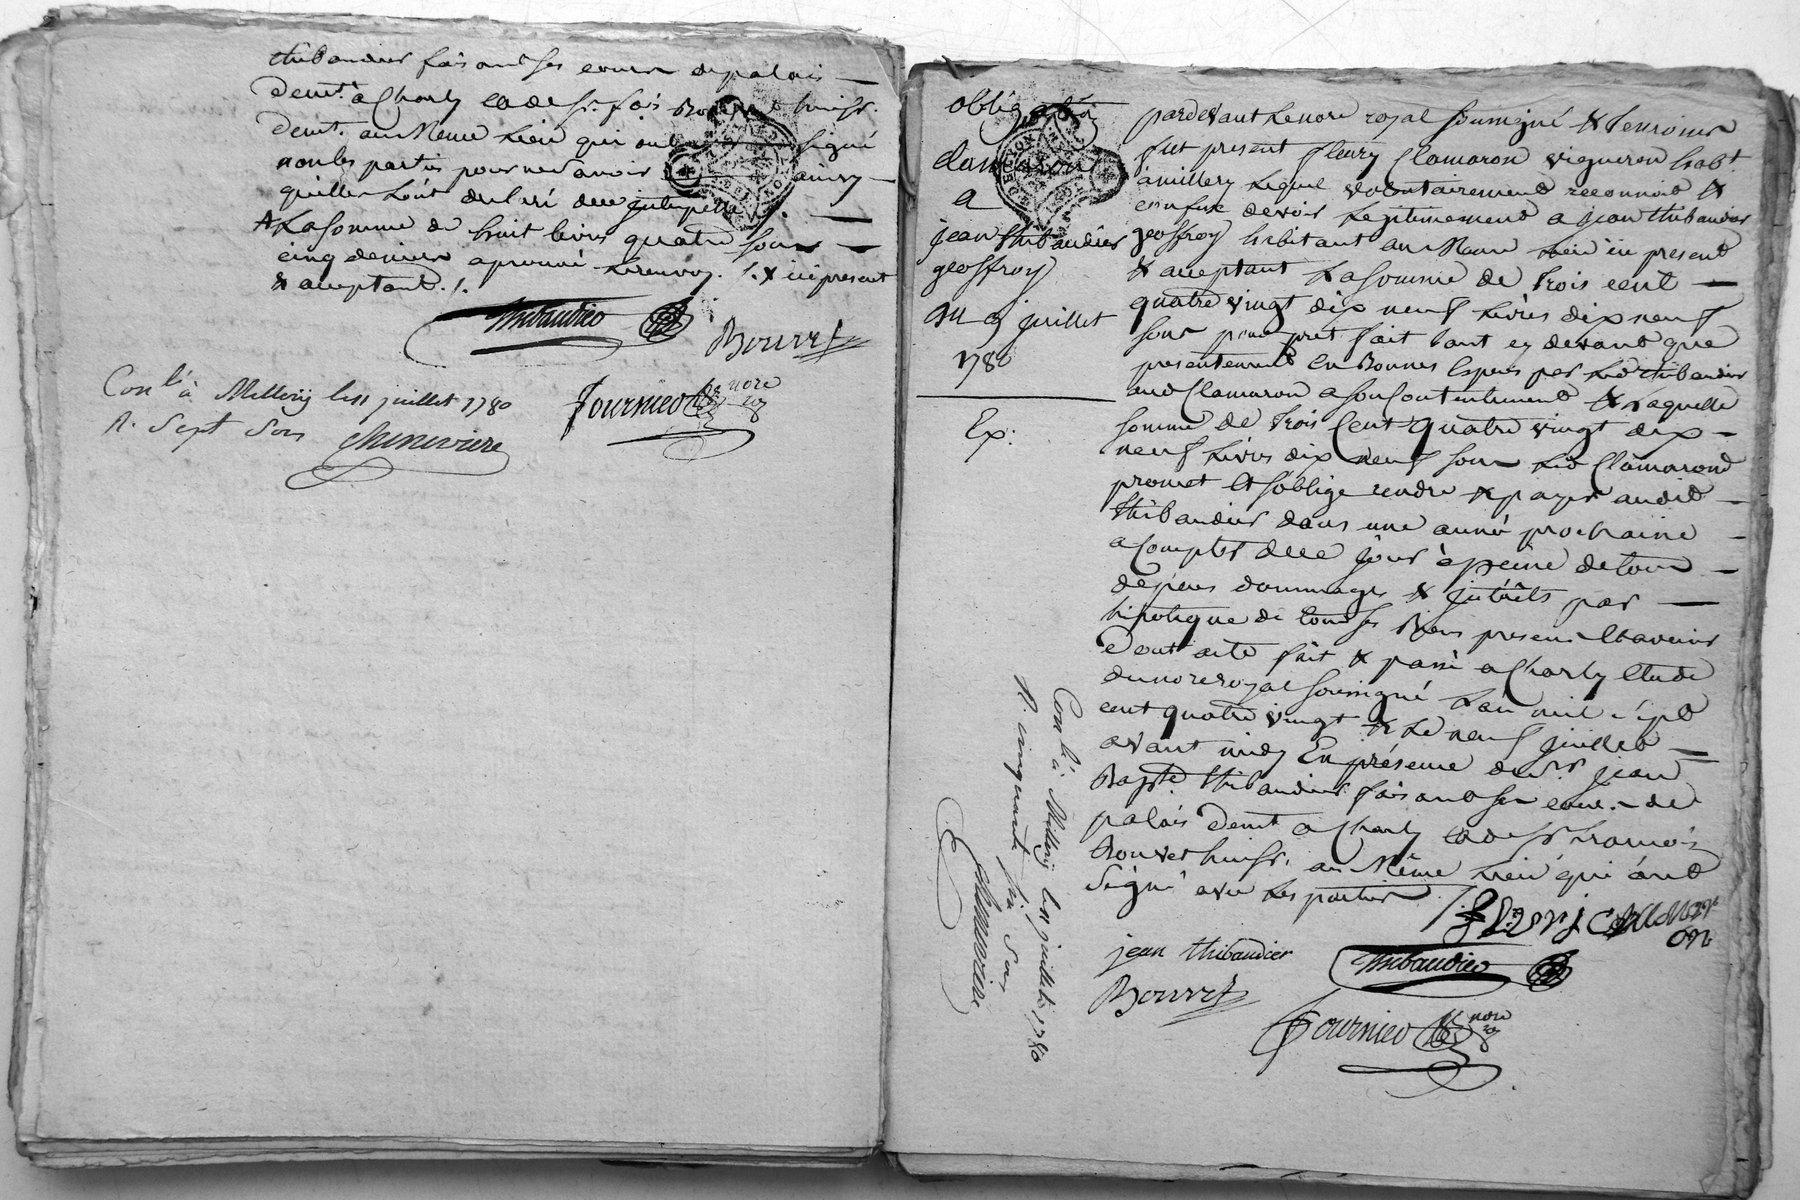 thibaudier faisant ses cours de palais
demt. à Charly et de sr. fois Bouvet huissr.
demt. au Meme Lieu qui ont signé
non les parties pour ne savoir ainsy
quilles l'ont declaré de ce interpellé ./.
+ La somme de huit livres quatre sous
cinq deniers aprouvé Le renvoy ./. x ici present
& acceptant ./.
thibaudier
Bouvet
Conlé à Millery le 11 juillet 1780
R. Sept Sous
Cheneviere
fournier nore
roy
obligation
clamaron
a
jean thibaudier
geoffroy
du 9 juillet
1780
Ex:
pardevant Le nore royal soussigné & temoins
fut present fleury Clamaron vigneron habt.
à millery Lequel volontairement reconnoit &
confesse devoir Legitimement a jean thibaudier
geoffroy habitant au Meme Lieu ici present
& acceptant La somme de trois cent
quatre vingt dix neuf Livres dix neuf
sous pour pret fait tant cy devant que
presentement en Bonnes Especes par Led thibaudier
aud Clamaron a son Contentement & Laquelle
somme de trois Cent quatre vingt dix
neuf Livres dix neuf sous Led Clamarond
promet et s'oblige rendre & payer audit
thibaudier dans une année prochaine
a Compter de ce jour à peine de tous
depens dommages & intérêts par
hipoteque de tous ses Biens presens et avenirs
Dont acte fait & passé a Charly Etude
du nore royal soussigné L'an mil sept
cent quatre vingt & Le neuf juillet
avant midy En présence de sr. jean
Bapte. thibaudier faisant ses cours de
palais demt a Charly et de sr françois
Bouvet huissr. au Même Lieu qui ont
signé avec Les parties ./.
jean thibaudier
thibaudier
Bouvet
fournier nore
roy
Conlé à Millery le 11 juillet 1780
R. cinquante six Sous
Cheneviere